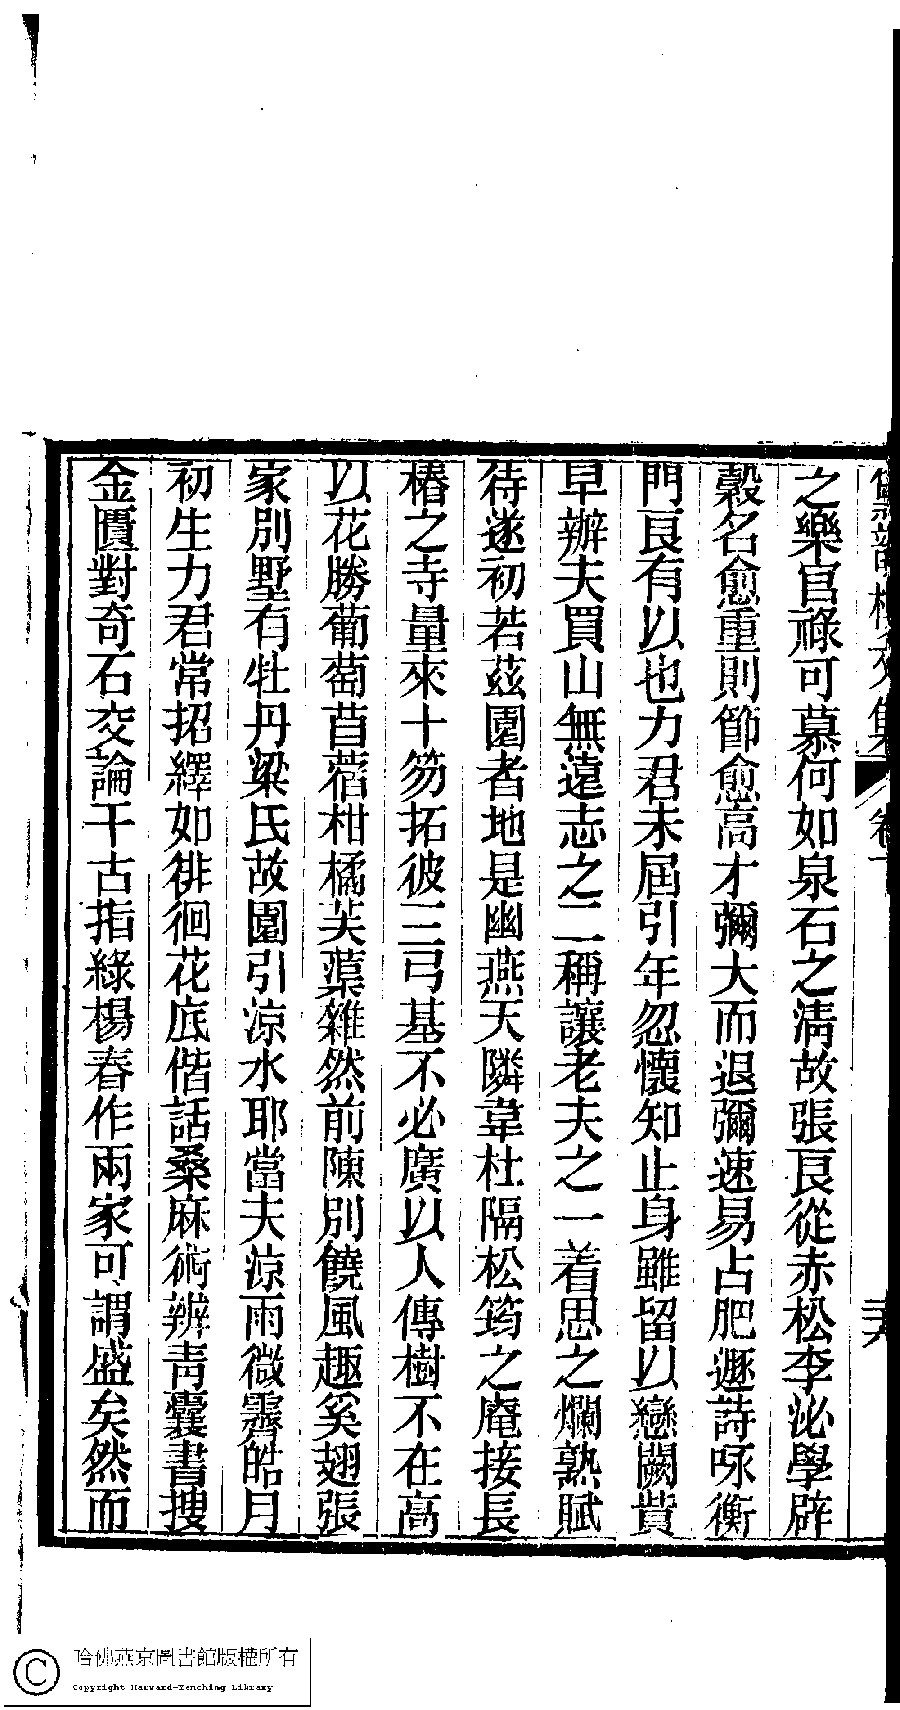 文集 卷
之樂官祿可慕何如泉石之清故張良從赤松李泌學辟
穀名愈重則節愈高才彌大而退彌速易占肥遯詩咏衡
門良有以也力君未屆引年忽懷知止身雖留以戀闕貲
早辦夫買山無遠志之二稱讓老夫之一着思之爛熟賦
待遂初若茲園者地是幽燕天隣韋杜隔松筠之庵接長
椿之寺量來十笏拓彼三弓基不必廣以人傳樹不在高
以花勝葡萄苜蓿柑橘芙蕖雜然前陳別饒風趣奚翅張
家別墅有牡丹梁氏故園引涼水耶當夫涼雨微霽皓月
初生力君常招繹如徘徊花底偕話桑麻術辨青囊書搜
金匱對奇石交論千古指綠楊春作兩家可謂盛矣然而
哈佛燕京圖書館版權所有
Copyright Harvard-Yenching Library